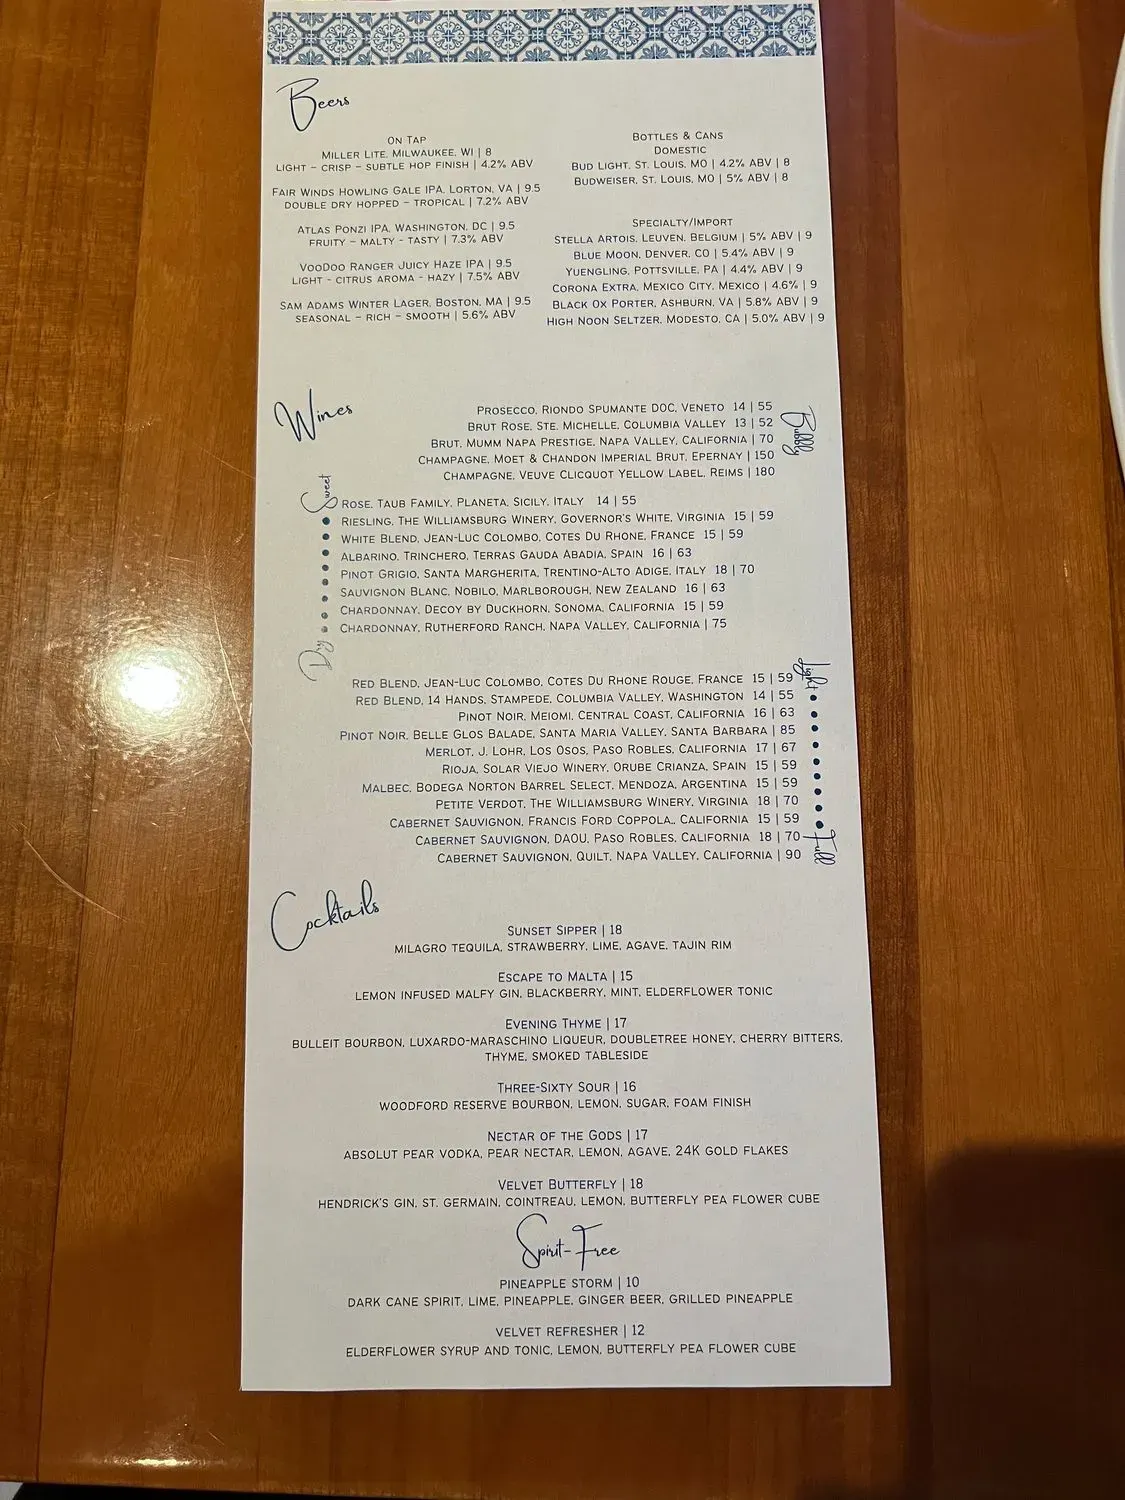 Beers
ON TAP
MILLER LITE, MILWAUKEE, WI | 8
LIGHT – CRISP – SUBTLE HOP FINISH | 4.2% ABV
FAIR WINDS HOWLING GALE IPA, LORTON, VA | 9.5
DOUBLE DRY HOPPED – TROPICAL | 7.2% ABV
ATLAS PONZI IPA, WASHINGTON, DC | 9.5
FRUITY – MALTY - TASTY | 7.3% ABV
VOODOO RANGER JUICY HAZE IPA | 9.5
LIGHT - CITRUS AROMA - HAZY | 7.5% ABV
SAM ADAMS WINTER LAGER, BOSTON, MA | 9.5
SEASONAL – RICH – SMOOTH | 5.6% ABV
BOTTLES & CANS
DOMESTIC
BUD LIGHT, ST. LOUIS, MO | 4.2% ABV | 8
BUDWEISER, ST. LOUIS, MO | 5% ABV | 8
SPECIALTY/IMPORT
STELLA ARTOIS, LEUVEN, BELGIUM | 5% ABV | 9
BLUE MOON, DENVER, CO | 5.4% ABV | 9
YUENGLING, POTTSVILLE, PA | 4.4% ABV | 9
CORONA EXTRA, MEXICO CITY, MEXICO | 4.6% | 9
BLACK OX PORTER, ASHBURN, VA | 5.8% ABV | 9
HIGH NOON SELTZER, MODESTO, CA | 5.0% ABV | 9
Wines
PROSECCO, RIONDO SPUMANTE DOC, VENETO 14 | 55
BRUT ROSE, STE. MICHELLE, COLUMBIA VALLEY 13 | 52
BRUT, MUMM NAPA PRESTIGE, NAPA VALLEY, CALIFORNIA | 70
CHAMPAGNE, MOET & CHANDON IMPERIAL BRUT, EPERNAY | 150
CHAMPAGNE, VEUVE CLICQUOT YELLOW LABEL, REIMS | 180
Bubbly
Sweet
ROSE, TAUB FAMILY, PLANETA, SICILY, ITALY 14 | 55
RIESLING, THE WILLIAMSBURG WINERY, GOVERNOR'S WHITE, VIRGINIA 15 | 59
WHITE BLEND, JEAN-LUC COLOMBO, COTES DU RHONE, FRANCE 15 | 59
ALBARINO, TRINCHERO, TERRAS GAUDA ABADIA, SPAIN 16 | 63
PINOT GRIGIO, SANTA MARGHERITA, TRENTINO-ALTO ADIGE, ITALY 18 | 70
SAUVIGNON BLANC, NOBILO, MARLBOROUGH, NEW ZEALAND 16 | 63
CHARDONNAY, DECOY BY DUCKHORN, SONOMA, CALIFORNIA 15 | 59
CHARDONNAY, RUTHERFORD RANCH, NAPA VALLEY, CALIFORNIA | 75
Dry
Light
RED BLEND, JEAN-LUC COLOMBO, COTES DU RHONE ROUGE, FRANCE 15 | 59
RED BLEND, 14 HANDS, STAMPEDE, COLUMBIA VALLEY, WASHINGTON 14 | 55
PINOT NOIR, MEIOMI, CENTRAL COAST, CALIFORNIA 16 | 63
PINOT NOIR, BELLE GLOS BALADE, SANTA MARIA VALLEY, SANTA BARBARA | 85
MERLOT, J. LOHR, LOS OSOS, PASO ROBLES, CALIFORNIA 17 | 67
RIOJA, SOLAR VIEJO WINERY, ORUBE CRIANZA, SPAIN 15 | 59
MALBEC, BODEGA NORTON BARREL SELECT, MENDOZA, ARGENTINA 15 | 59
PETITE VERDOT, THE WILLIAMSBURG WINERY, VIRGINIA 18 | 70
CABERNET SAUVIGNON, FRANCIS FORD COPPOLA,, CALIFORNIA 15 | 59
CABERNET SAUVIGNON, DAOU, PASO ROBLES, CALIFORNIA 18 | 70
CABERNET SAUVIGNON, QUILT, NAPA VALLEY, CALIFORNIA | 90
Full
Cocktails
SUNSET SIPPER | 18
MILAGRO TEQUILA, STRAWBERRY, LIME, AGAVE, TAJIN RIM
ESCAPE TO MALTA | 15
LEMON INFUSED MALFY GIN, BLACKBERRY, MINT, ELDERFLOWER TONIC
EVENING THYME | 17
BULLEIT BOURBON, LUXARDO-MARASCHINO LIQUEUR, DOUBLETREE HONEY, CHERRY BITTERS,
THYME, SMOKED TABLESIDE
THREE-SIXTY SOUR | 16
WOODFORD RESERVE BOURBON, LEMON, SUGAR, FOAM FINISH
NECTAR OF THE GODS | 17
ABSOLUT PEAR VODKA, PEAR NECTAR, LEMON, AGAVE, 24K GOLD FLAKES
VELVET BUTTERFLY | 18
HENDRICK'S GIN, ST. GERMAIN, COINTREAU, LEMON, BUTTERFLY PEA FLOWER CUBE
Spirit-Free
PINEAPPLE STORM | 10
DARK CANE SPIRIT, LIME, PINEAPPLE, GINGER BEER, GRILLED PINEAPPLE
VELVET REFRESHER | 12
ELDERFLOWER SYRUP AND TONIC, LEMON, BUTTERFLY PEA FLOWER CUBE